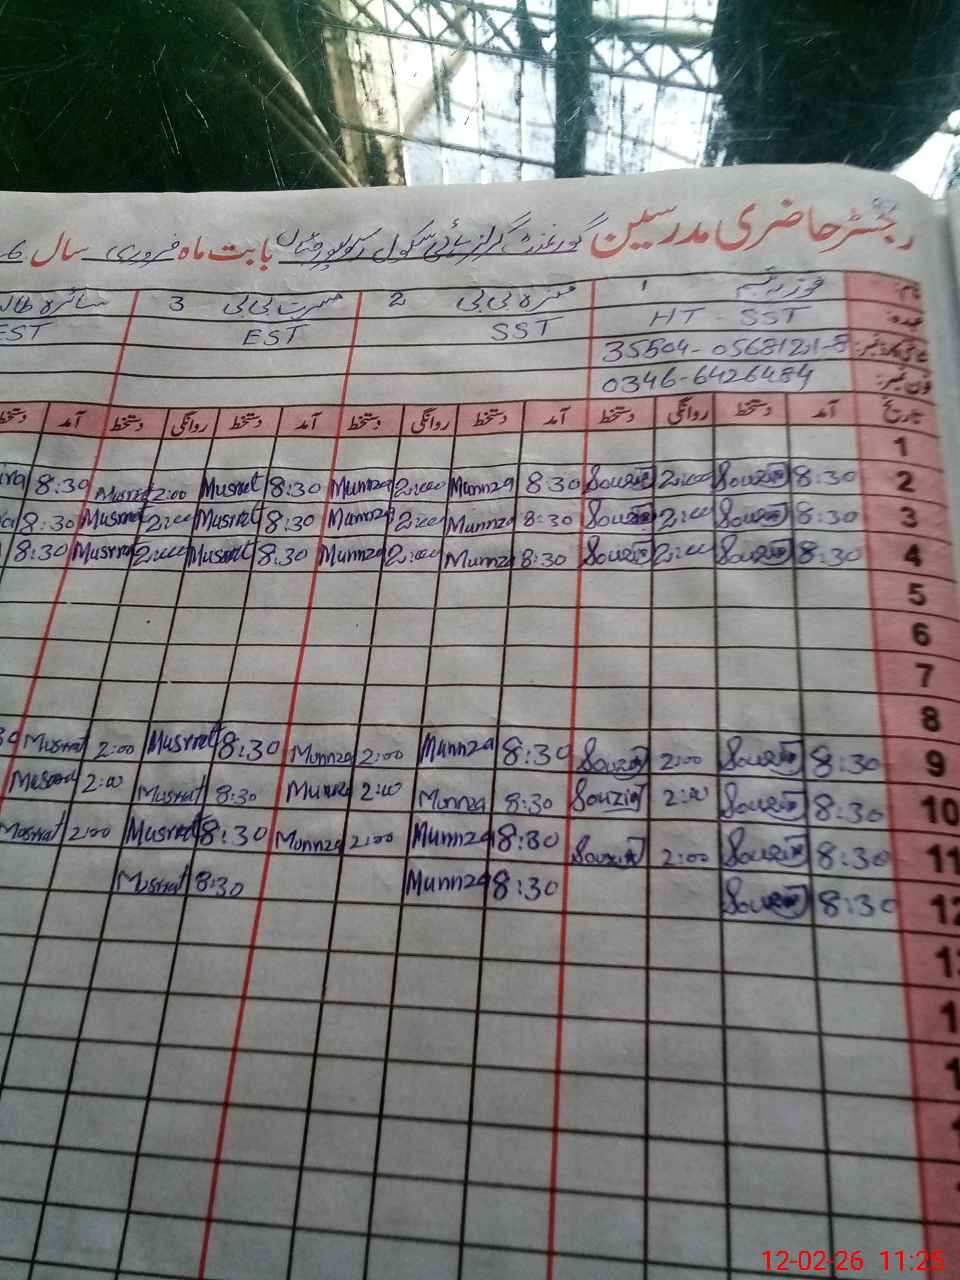 رجسٹر حاضری مدرسین گورنمنٹ گرلز ہائی سکول بابت ماہ فروری سال
نام: 1 فوزیہ بیگم 2 منزہ بی بی 3 مسرت بی بی سائرہ
عہدہ: HT - SST SST EST EST
0346-6426484 فون نمبر:
تاریخ آمد دستخط روانگی دستخط آمد دستخط روانگی دستخط آمد دستخط روانگی دستخط آمد دستخط
1
2 8:30 Souzia 2:00 Souzia 8:30 Munnza 2:00 Munnza 8:30 Musrat 2:00 Musrat 8:30
3 8:30 Souzia 2:00 Souzia 8:30 Munnza 2:00 Munnza 8:30 Musrat 2:00 Musrat 8:30
4 8:30 Souzia 2:00 Souzia 8:30 Munnza 2:00 Munnza 8:30 Musrat 2:00 Musrat 8:30
5
6
7
8
9 8:30 Souzia 2:00 Souzia 8:30 Munnza 2:00 Munnza 8:30 Musrrat 2:00 Musrat
10 8:30 Souzia 2:00 Souzia 8:30 Munnza 2:00 Munnza 8:30 Musrat 2:00 Musrat
11 8:30 Souzia 2:00 Souzia 8:30 Munnza 2:00 Munnza 8:30 Musrrat 2:00 Musrat
12 8:30 Souzia 8:30 Munnza 8:30 Musrrat
12-02-26 11:25